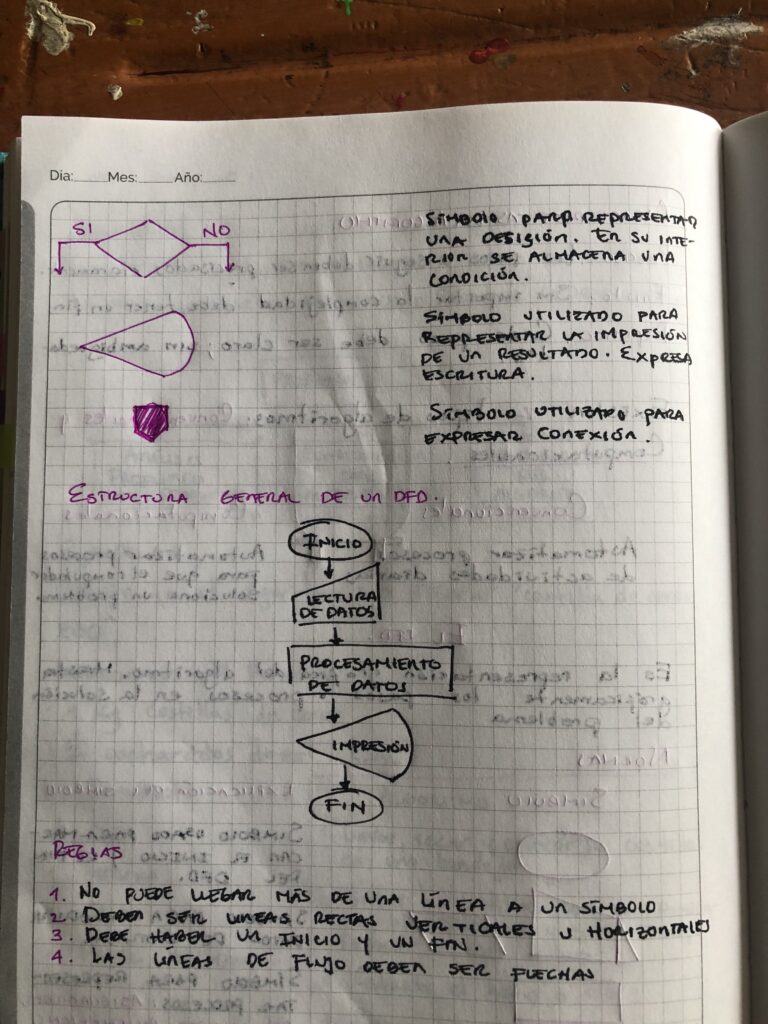 Dia: Mes: Año:
SI NO
SIMBOLO PARA REPRESENTAR
UNA DESISIÓN. EN SU INTE-
RIOR SE ALMACENA UNA
CONDICIÓN.
SIMBOLO UTILIZADO PARA
REPRESENTAR LA IMPRESIÓN
DE UN RESULTADO. EXPRESA
ESCRITURA.
SIMBOLO UTILIZADO PARA
EXPRESAR CONEXIÓN.
ESTRUCTURA GENERAL DE UN DFD.
INICIO
LECTURA
DE DATOS
PROCESAMIENTO
DE DATOS
IMPRESIÓN
FIN
REGLAS
1. NO PUEDE LLEGAR MÁS DE UNA LÍNEA A UN SIMBOLO
2. DEBEN SER LINEAS RECTAS VERTICALES U HORIZONTALES
3. DEBE HABER UN INICIO Y UN FIN.
4. LAS LINEAS DE FLUJO DEBEN SER FLECHAS